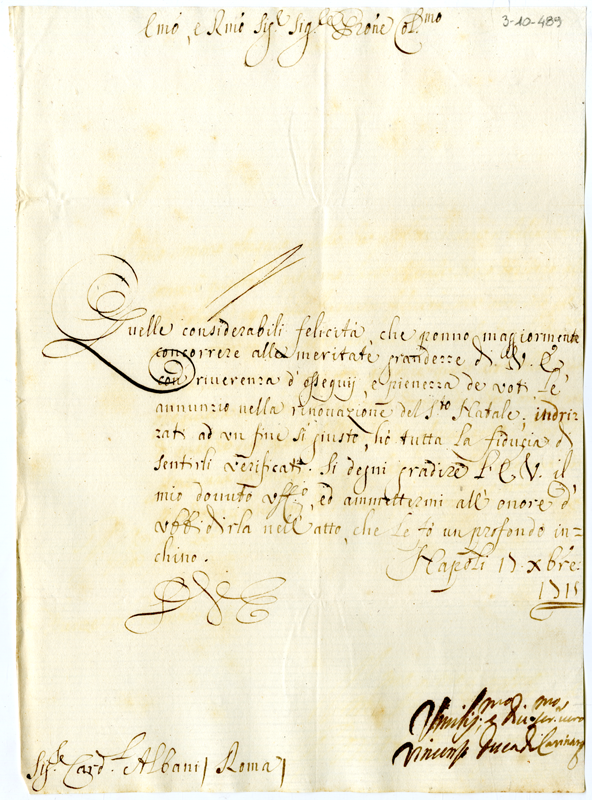 3-10-489
Emo, e Rmo Sigr Sigr e Prone Colmo
Quelle considerabili felicità, che ponno maggiormente
concorrere alle meritate grandezze di V. E.
con riverenza d'ossequij, e pienezza de voti Le
annunzio nella rinovazione del Sto Natale; indriz
zati ad un fine sì giusto, hò tutta la fiducia di
sentirli verificati. Si degni gradire l'E. V. il
mio dovuto uffo, ed ammettermi all'onore d'
ubbidirla nell'atto, che Le fò un profondo in=
chino.
Napoli 17 Xbre
1715
D V E
Umilismo e Divmo Servitore vero
Vincenzo Duca di
Sigr Cardl Albani / Roma /